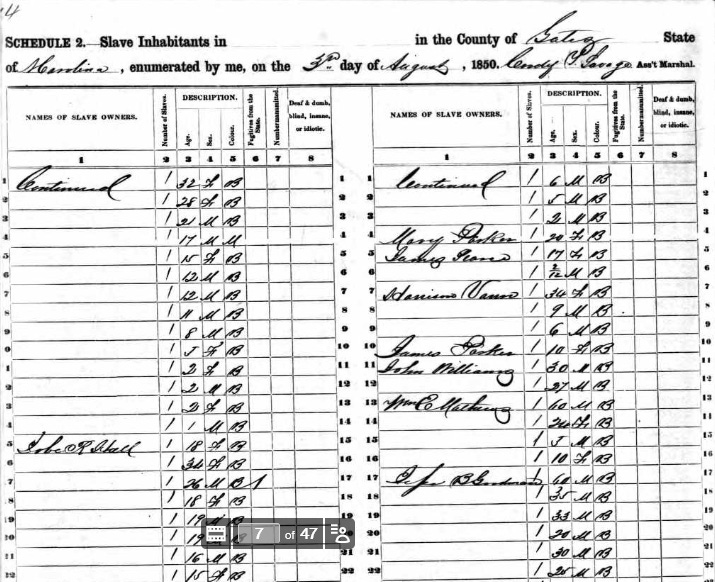 14
SCHEDULE 2. Slave Inhabitants in in the County of Gates State
of N Carolina, enumerated by me, on the 3rd day of August, 1850. Ass't Marshal.
NAMES OF SLAVE OWNERS. Number of Slaves. DESCRIPTION. Age. Sex. Colour. Fugitives from the State. Number manumitted. Deaf & dumb, blind, insane, or idiotic.
1 2 3 4 5 6 7 8
1 Continued 1 32 F B
2 1 28 F B
3 1 21 M B
4 1 17 M M
5 1 15 F B
6 1 12 M B
7 1 12 M B
8 1 11 M B
9 1 8 M B
10 1 5 F B
11 1 2 F B
12 1 2 M B
13 1 2 F B
14 1 1 M B
15 R Hall 1 18 F B
16 1 34 F B
17 1 26 M B 1
18 1 18 F B
19 1 19
20 1 19
21 1 16 M B
22 1 15 F B
NAMES OF SLAVE OWNERS. Number of Slaves. DESCRIPTION. Age. Sex. Colour. Fugitives from the State. Number manumitted. Deaf & dumb, blind, insane, or idiotic.
1 2 3 4 5 6 7 8
1 Continued 1 6 M B
2 1 5 M B
3 1 2 M B
4 Mary Parker 1 20 F B
5 James 1 17 F B
6 1 2/12 M B
7 Harrison Vann 1 34 F B
8 1 9 M B
9 1 6 M B
10 James Parker 1 10 F B
11 John Williams 1 30 M B
12 1 27 M B
13 Wm E Mathews 1 60 M B
14 1 24 F B
15 1 5 M B
16 1 10 F B
17 B Goodman 1 60 M B
18 1 35 M B
19 1 33 M B
20 1 20 M B
21 1 30 M B
22 1 25 M B
7 of 47